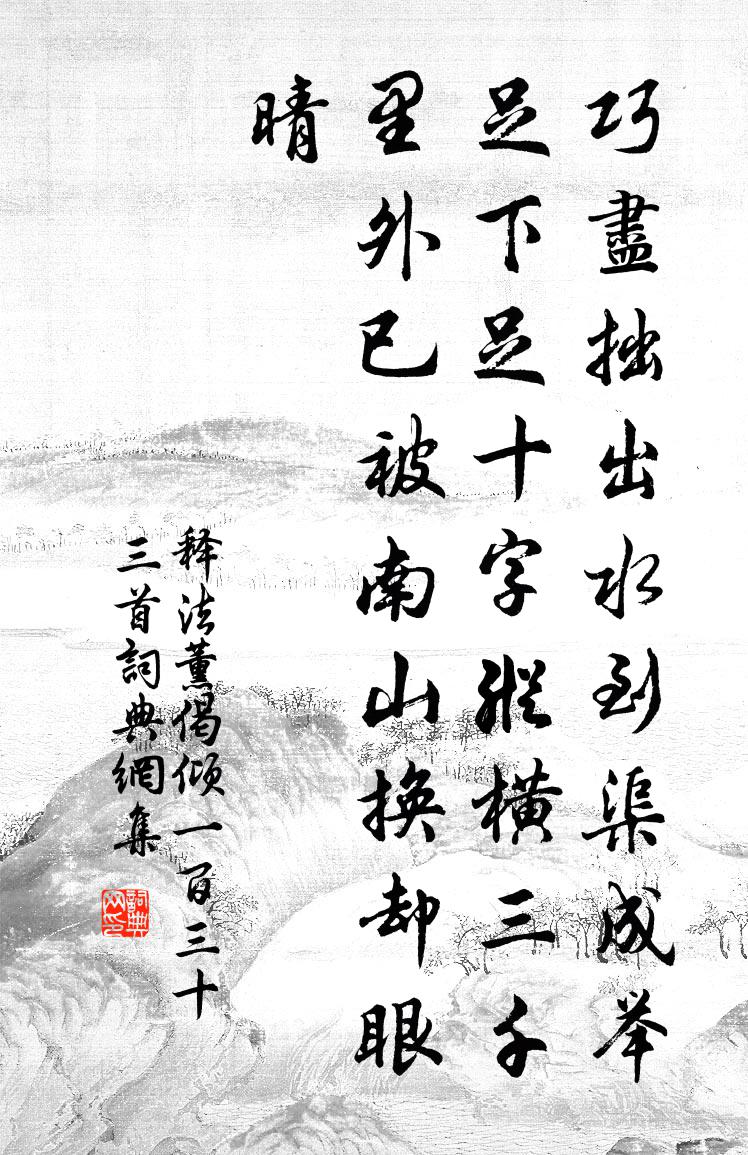 巧盡拙出水到渠成举
足下足十字縱橫三千
里外已被南山換却眼
晴
释法薰偈傾一百三十
三首詞典網集
詞典网印